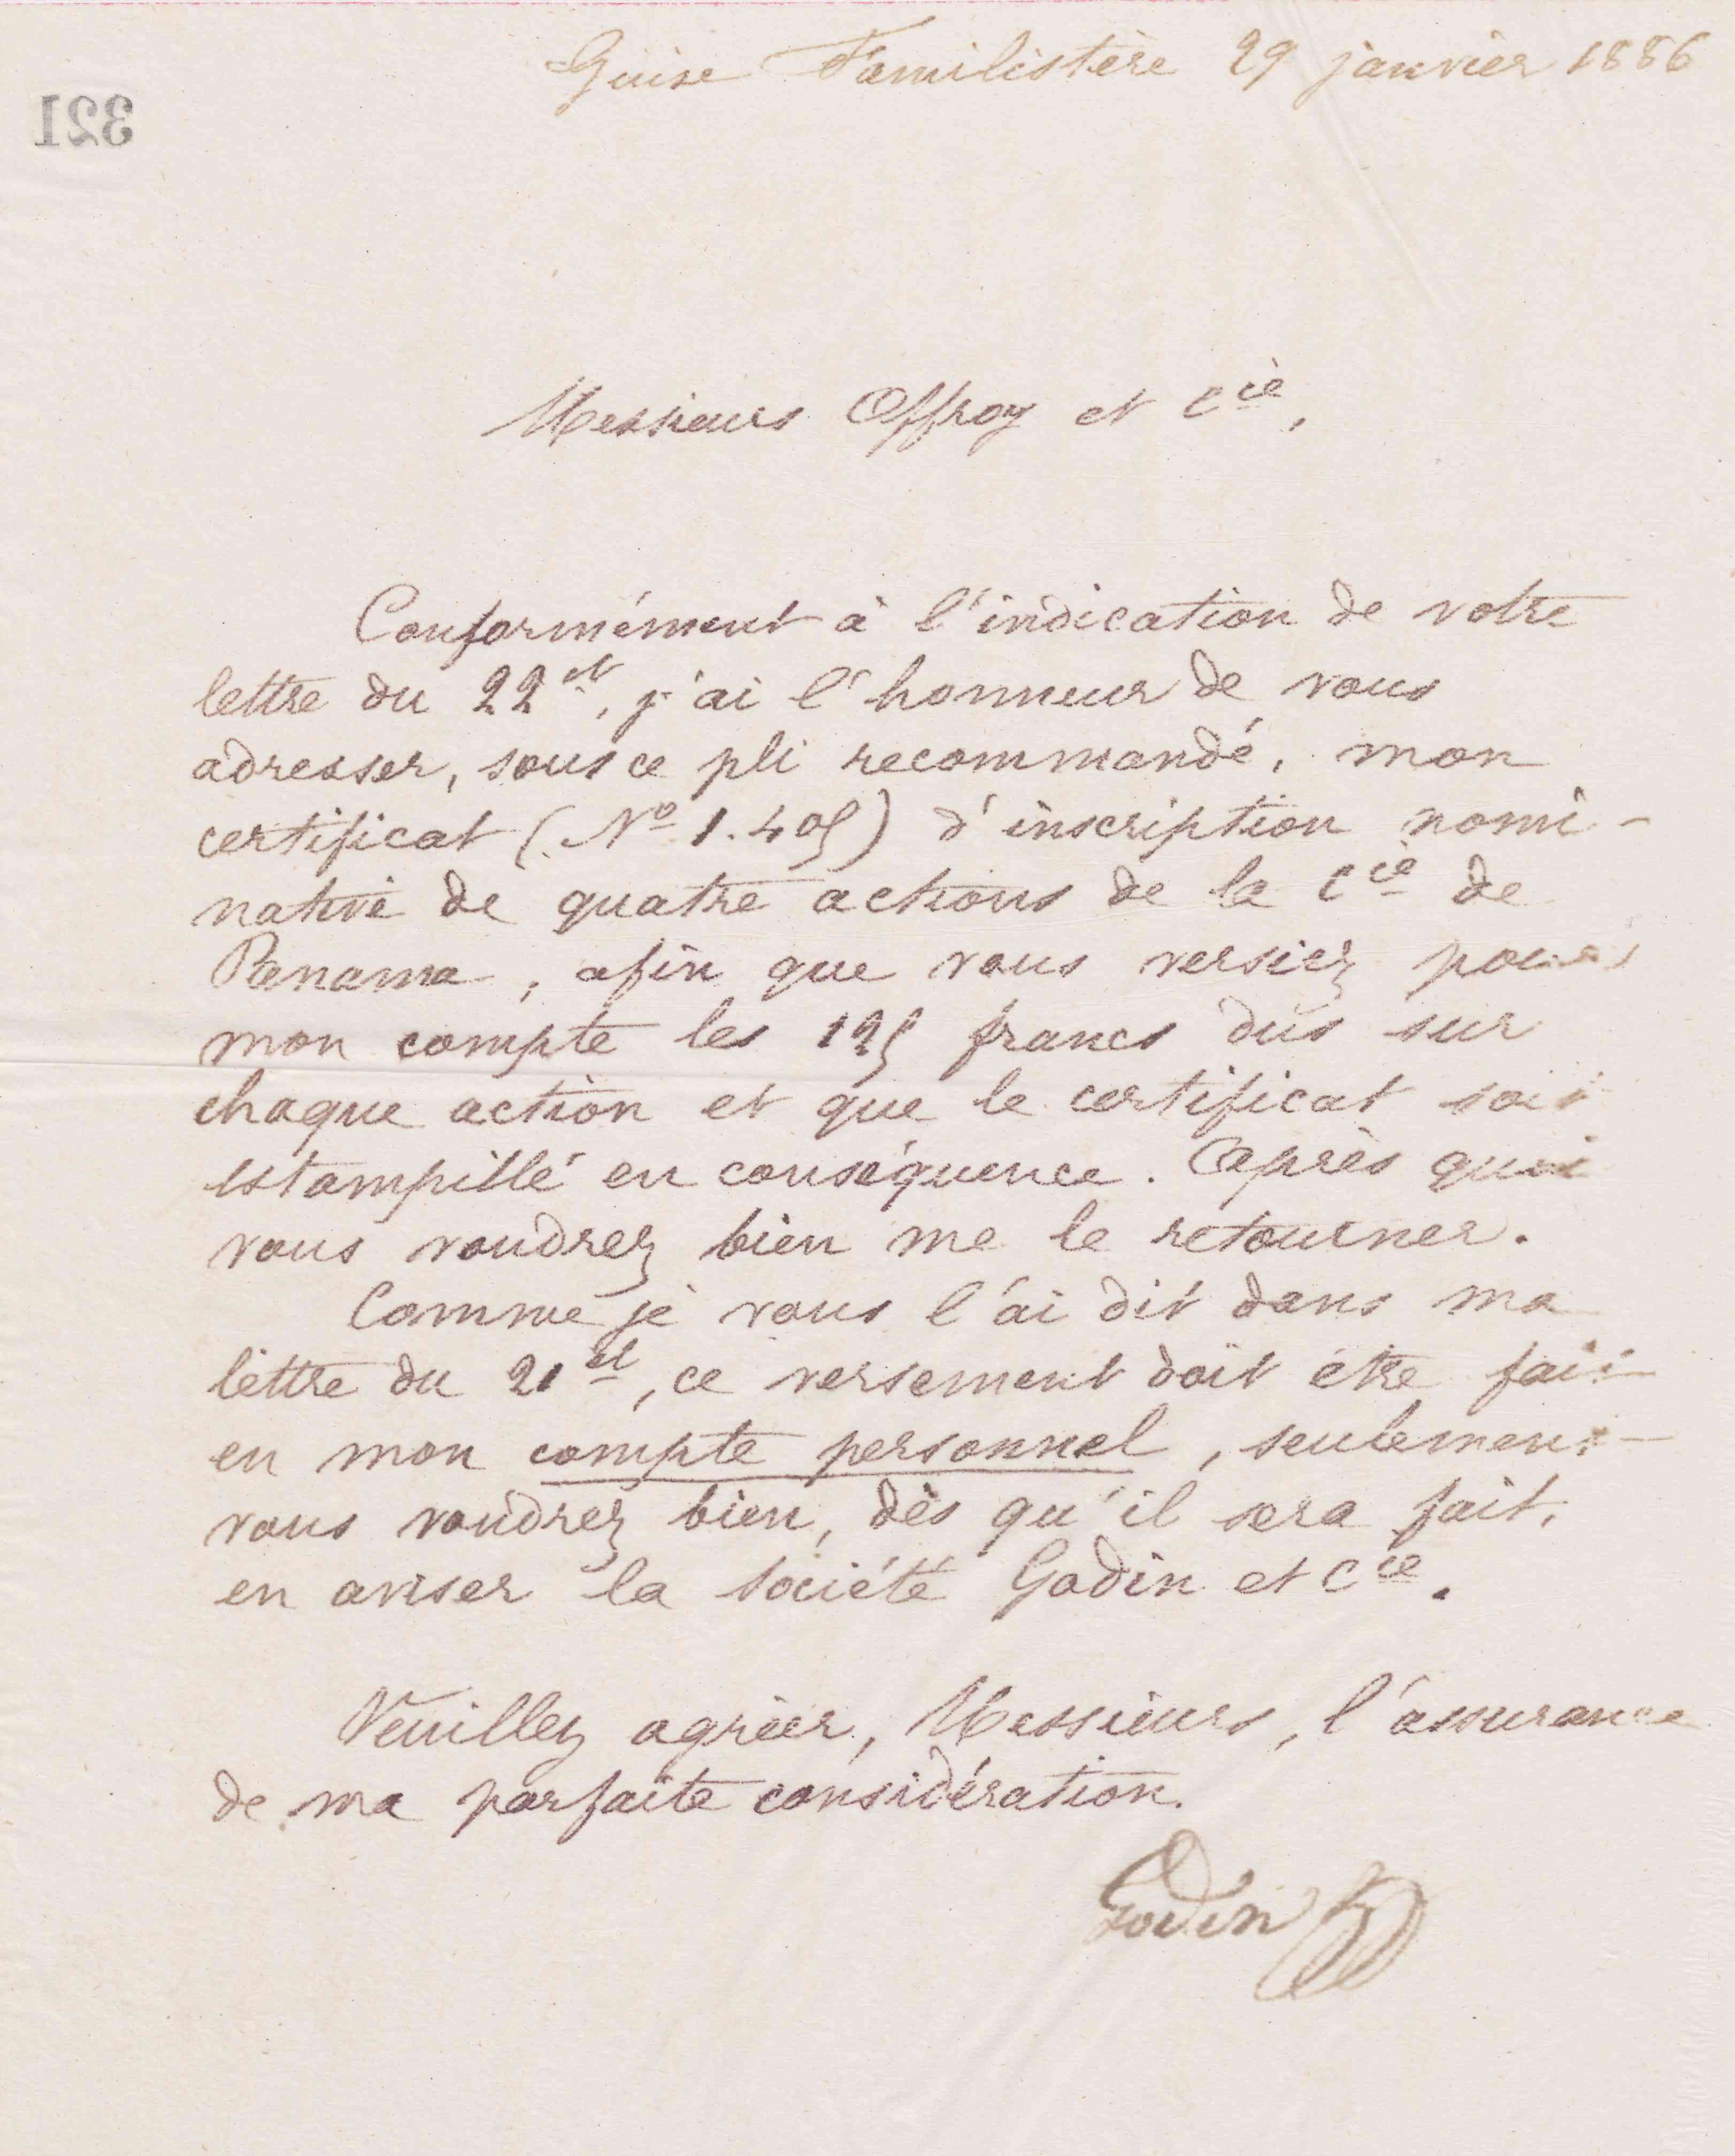 Guise Familistère 29 janvier 1886
321
Messieurs Offroy et Cie,
Conformément à l'indication de votre
lettre du 22 ct, j'ai l'honneur de vous
adresser, sous ce pli recommandé, mon
certificat (No 1.405) d'inscription nomi-
native de quatre actions de la Cie de
Panama, afin que vous versiez pour
mon compte les 125 francs dûs sur
chaque action et que le certificat soit
estampillé en conséquence. Après quoi
vous voudrez bien me le retourner.
Comme je vous l'ai dit dans ma
lettre du 21 ct, ce versement doit être fait
en mon compte personnel, seulement
vous voudrez bien, dès qu'il sera fait,
en aviser la société Godin et Cie.
Veuillez agréer, Messieurs, l'assurance
de ma parfaite considération.
Godin